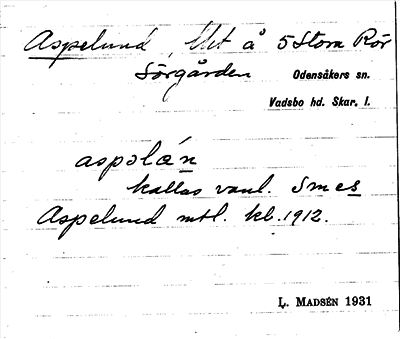 Aspelund, lht å 5 Stom Rör
Sörgården Odensåkers sn.
Vadsbo hd. Skar. l.
aspəlán
kallas vanl. Smes
Aspelund mtl. kl. 1912.
L. MADSÉN 1931